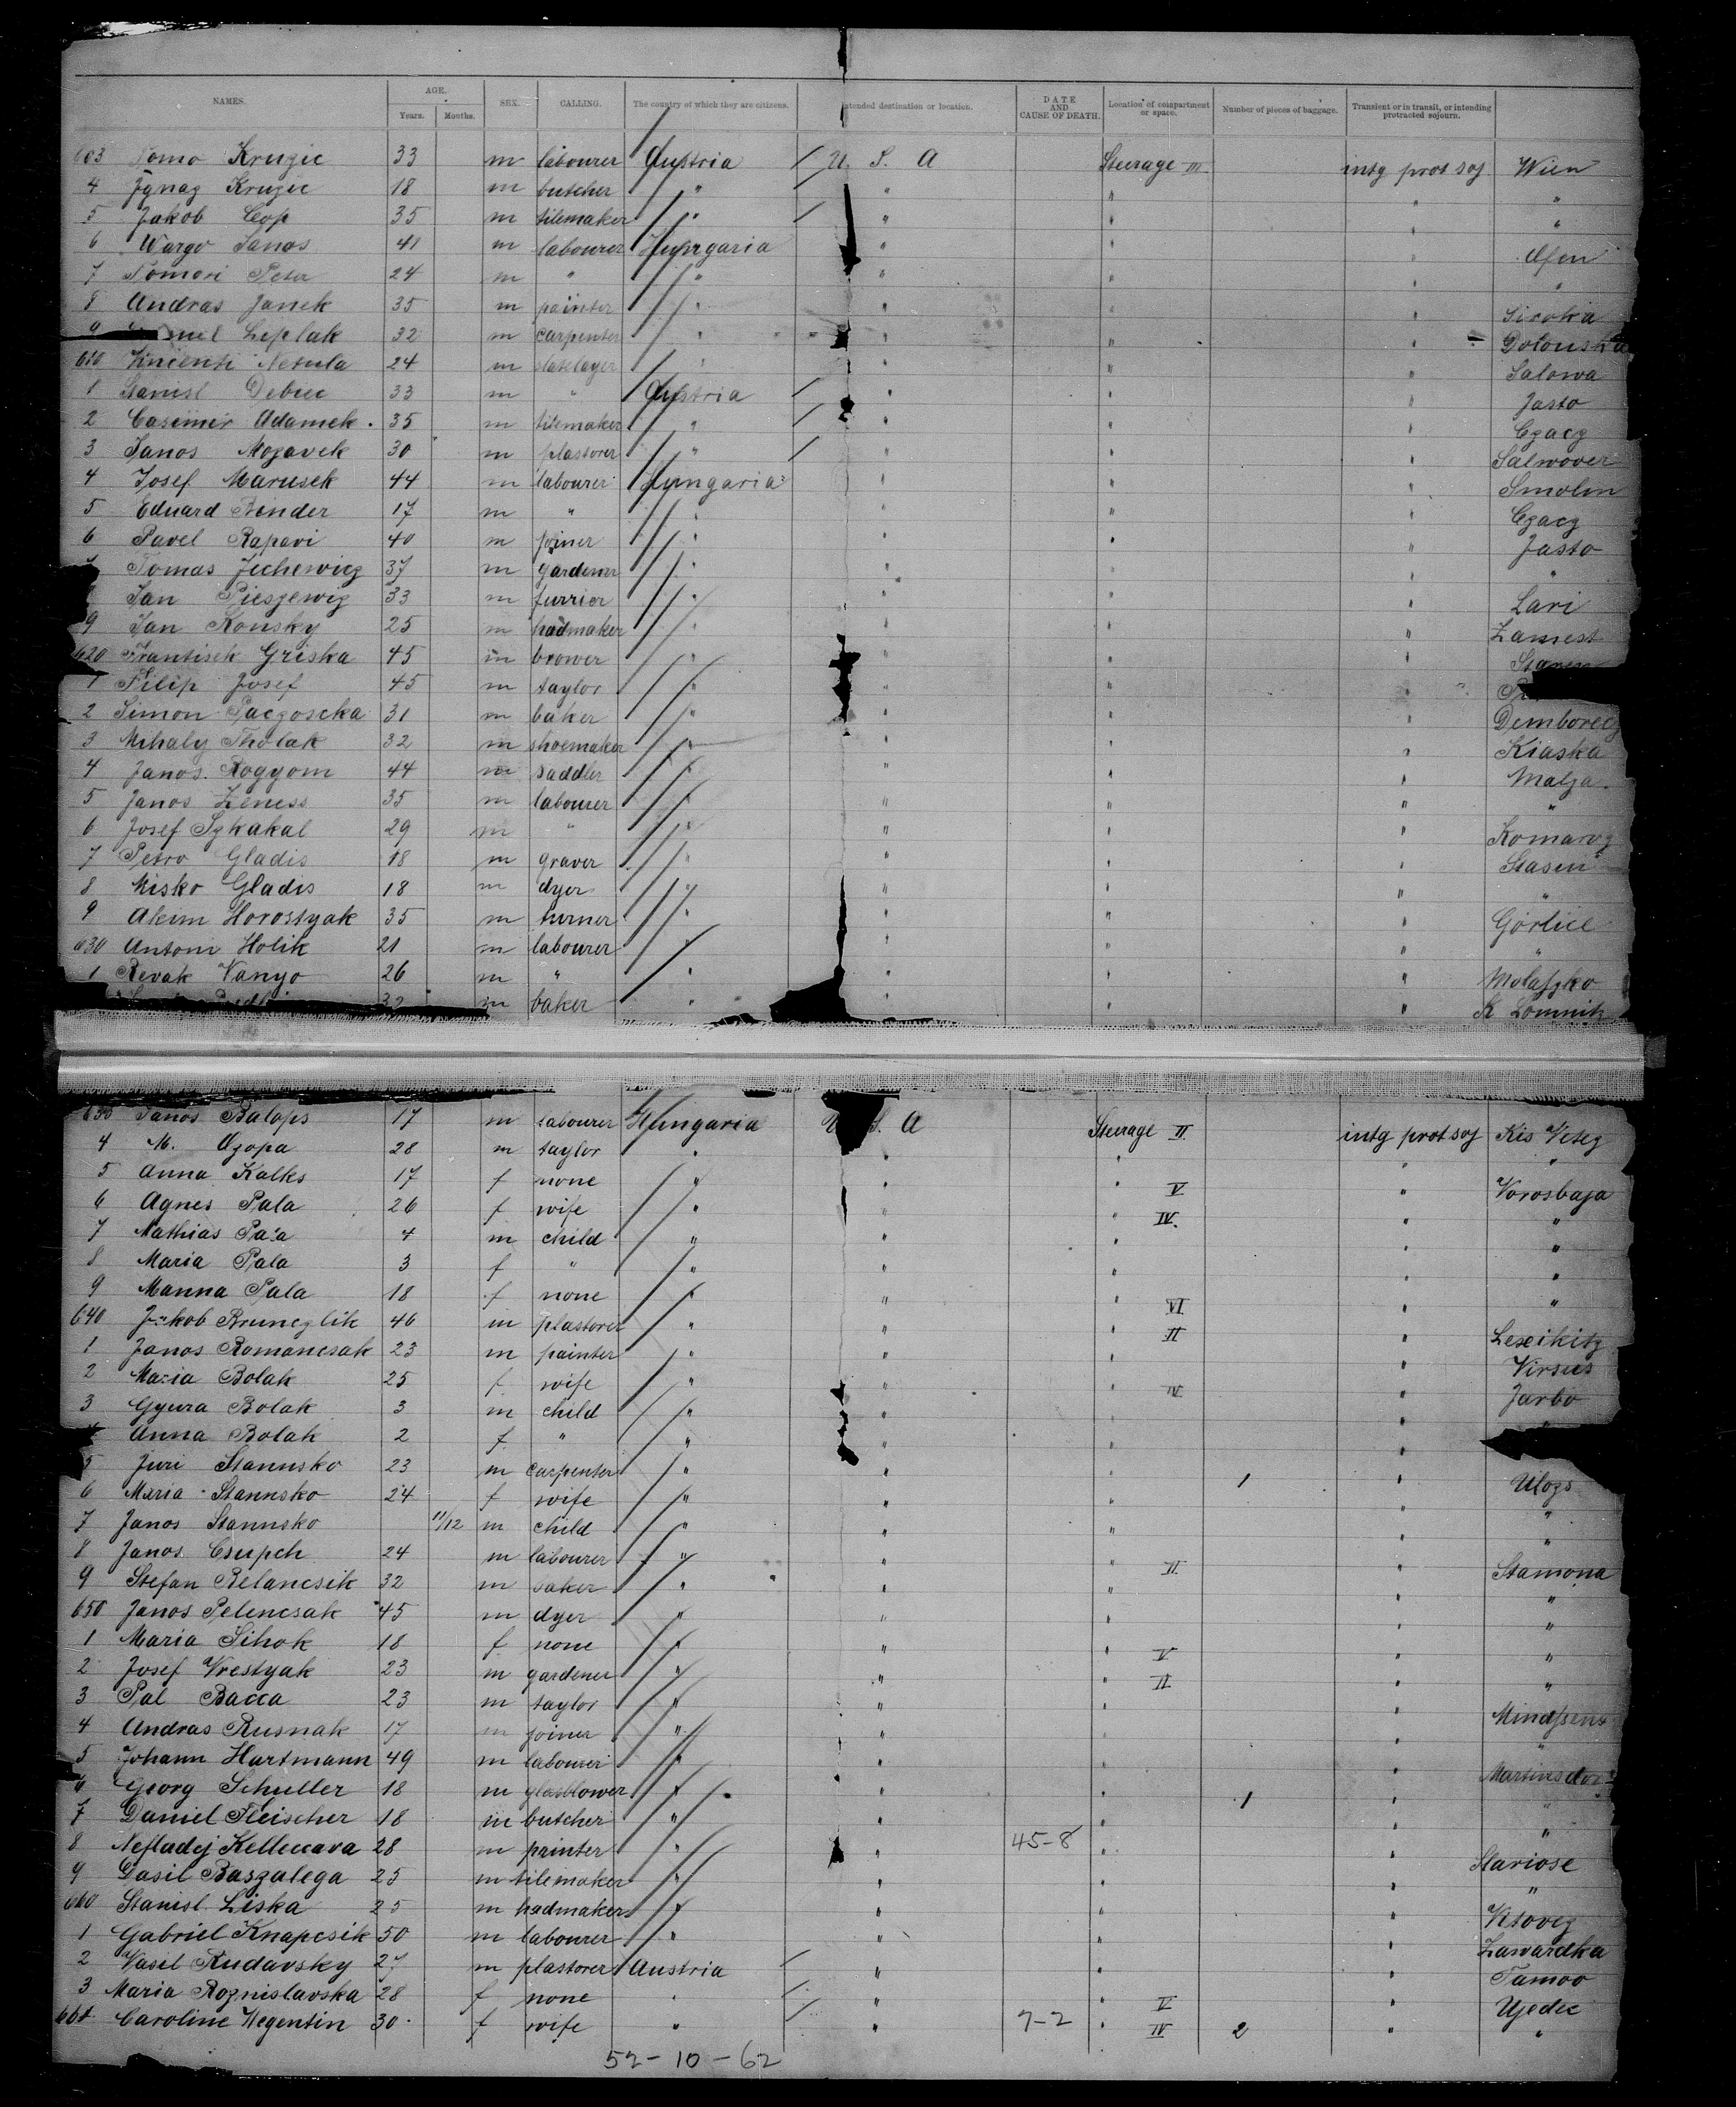 NAMES. AGE. SEX. CALLING. The country of which they are citizens. Intended destination or location. DATE AND CAUSE OF DEATH. Location of compartment or space. Number of pieces of baggage. Transient or in transit, or intending protracted sojourn.
Years. Months.
603 Tomo Kruzic 33 m labourer Austria / U. S. A Steerage III intg prot soj Wien
4 Ignaz Kruzic 18 m butcher " / " " " "
5 Jakob Cop 35 m tilemaker " / " " " "
6 Wargo Janos 41 m labourer Hungaria " " " Ofen
7 Tomori Peter 24 m " " " " " "
8 Andras Janek 35 m painter " " " " Siroka
9 Leplak 32 m carpenter " " " "
610 Vincenti Netula 24 m slatelayer " " " " Salowa
1 Stanisl Debiec 33 m " Austria / " " " Jasto
2 Casimir Adamek 35 m tilemaker " / " " " Czacz
3 Janos Mozavek 30 m plastorer " / " " " Salwover
4 Josef Marusek 44 m labourer Hungaria " " " Smolin
5 Eduard Binder 17 m " " " " " Czacz
6 Pavel Rapavi 40 m joiner " " " " Jasto
Tomas Jichewicz 37 m gardener " " " " "
Jan Pieszewiz 33 m furrier " " " " Lari
9 Jan Konsky 25 m hadmaker " " " " Zamest
620 Frantisek Griska 45 m brower " " " "
1 Filip Josef 45 m taylor " " " "
2 Simon Paczoscka 31 m baker " " " " Demborecz
3 Mihaly Tholak 32 m shoemaker " " " " Kiaska
4 Janos Rogyom 44 m saddler " " " " Malza
5 Janos Zeness 35 m labourer " " " " "
6 Josef Szkakal 29 m " " " " " Komaroz
7 Petro Gladis 18 m graver " " " " Stasin
8 Misko Gladis 18 m dyer " " " " "
9 Akim Horostyak 35 m turner " " " " Görlice
630 Antoni Holik 21 m labourer " " " " "
1 Revak Vanyo 26 m " " " " " Molaszko
32 m baker " " " " K Lomnitz
633 Janos Balops 17 m labourer Hungaria U. S. A Steerage II intg prot soj Kis Veteg
4 M. Ozopa 28 m taylor " " " " "
5 Anna Kalks 17 f none " " " V " Vorosbaja
6 Agnes Pala 26 f wife " " " IV " "
7 Mathias Pala 4 m child " " " " "
8 Maria Pala 3 f " " " " " "
9 Manna Pala 18 f none " " " VI " "
640 Jakob Brunczlik 46 m plastorer " " " II " Lexikitz
1 Janos Romancsak 23 m painter " " " " Virsus
2 Maria Bolak 25 f wife " " " IV " Jarbo
3 Gyura Bolak 3 m child " " " " "
4 Anna Bolak 2 f " " " " "
5 Juri Stannsko 23 m carpenter " " " 1 " Ulozs
6 Maria Stannsko 24 f wife " " " " "
7 Janos Stannsko 11/12 m child " " " " "
8 Janos Csupeh 24 m labourer " " " II " Stamona
9 Stefan Relancsik 32 m baker " " " " "
650 Janos Pelencsak 45 m dyer " " " " "
1 Maria Sihok 18 f none " " " V " "
2 Josef Vrestyak 23 m gardener " " " II " "
3 Pal Bacca 23 m taylor " " " " Mindszens
4 Andras Rusnak 17 m joiner " " " " "
5 Johann Hartmann 49 m labourer " " " " Martinsdorf
6 Georg Schuller 18 m glasblower " " " 1 " "
7 Daniel Fleischer 18 m butcher " " " " "
8 Neftadej Kelleccava 28 m painter " " 45-8 " " Stariose
9 Wasil Baszalega 25 m tilemaker " " " " "
660 Stanisl. Liska 25 m hadmaker " " " " Ktovez
1 Gabriel Knapcsik 50 m labourer " " " " Zawardka
2 Vasil Rudavsky 27 m plastorer Austria / " " " Tamoo
3 Maria Roznislavska 28 f none " / " " V " Ujedec
664 Caroline Wegentin 30 f wife " / " 7-2 " IV 2 " "
52-10-62